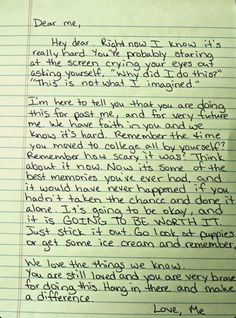 Dear me,
Hey dear. Right now I know it's
really hard. You're probably staring
at the screen crying your eyes out
asking yourself, "Why did I do this?"
"This is not what I imagined."
I'm here to tell you that you are doing
this for past me, and for very future
me. We have faith in you and we
know it's hard. Remember the time
you moved to college all by yourself?
Remember how scary it was? Think
about it now. Now its some of the
best memories you've ever had, and
it would have never happened if you
hadn't taken the chance and done it
alone. It's going to be okay, and
it is GOING TO BE WORTH IT.
Just stick it out. Go look at puppies
or get some ice cream and remember,
We love the things we know.
You are still loved and you are very brave
for doing this. Hang in there and make
a difference.
Love, Me